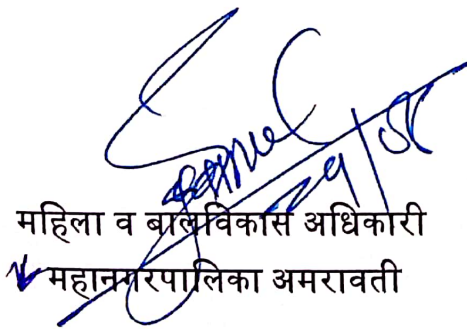 29/08
महिला व बालविकास अधिकारी
महानगरपालिका अमरावती